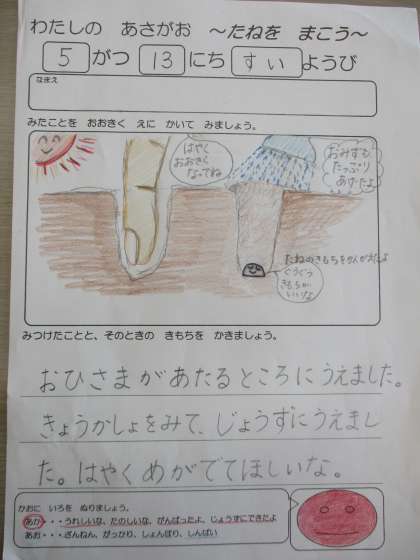 わたしの あさがお ～たねを まこう～
5 がつ 13 にち すい ようび
なまえ
みたことを おおきく えに かいて みましょう。
はやく
おおきく
なってね
おみずも
たっぷり
あげたよ
たねのきもちをかんがえたよ
ぐうぐう
きもちが
いいな
みつけたことと、そのときの きもちを かきましょう。
おひさまがあたるところにうえました。
きょうかしょをみて、じょうずにうえまし
た。はやくめがでてほしいな。
かおに いろを ぬりましょう。
あか・・・うれしいな、たのしいな、がんばったよ、じょうずにできたよ
あお・・・ざんねん、がっかり、しょんぼり、しんぱい